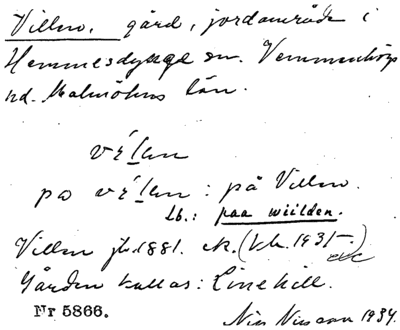 Villen, gård, jordområde i
Hemmesdynge sn. Vemmenhögs
hd. Malmöhus län.
vílen
pa vílen : på Villen.
Lb.: paa wiilden.
Villen jb. 1881. ek. (tk. 1931-.)
Gården kallas: Linehill.
Nr 5866.
1934.